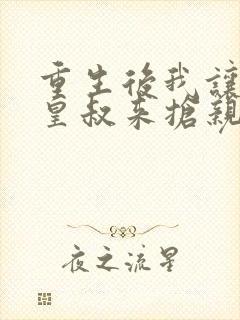 重生後我讓
皇叔來搶親
夜之流星